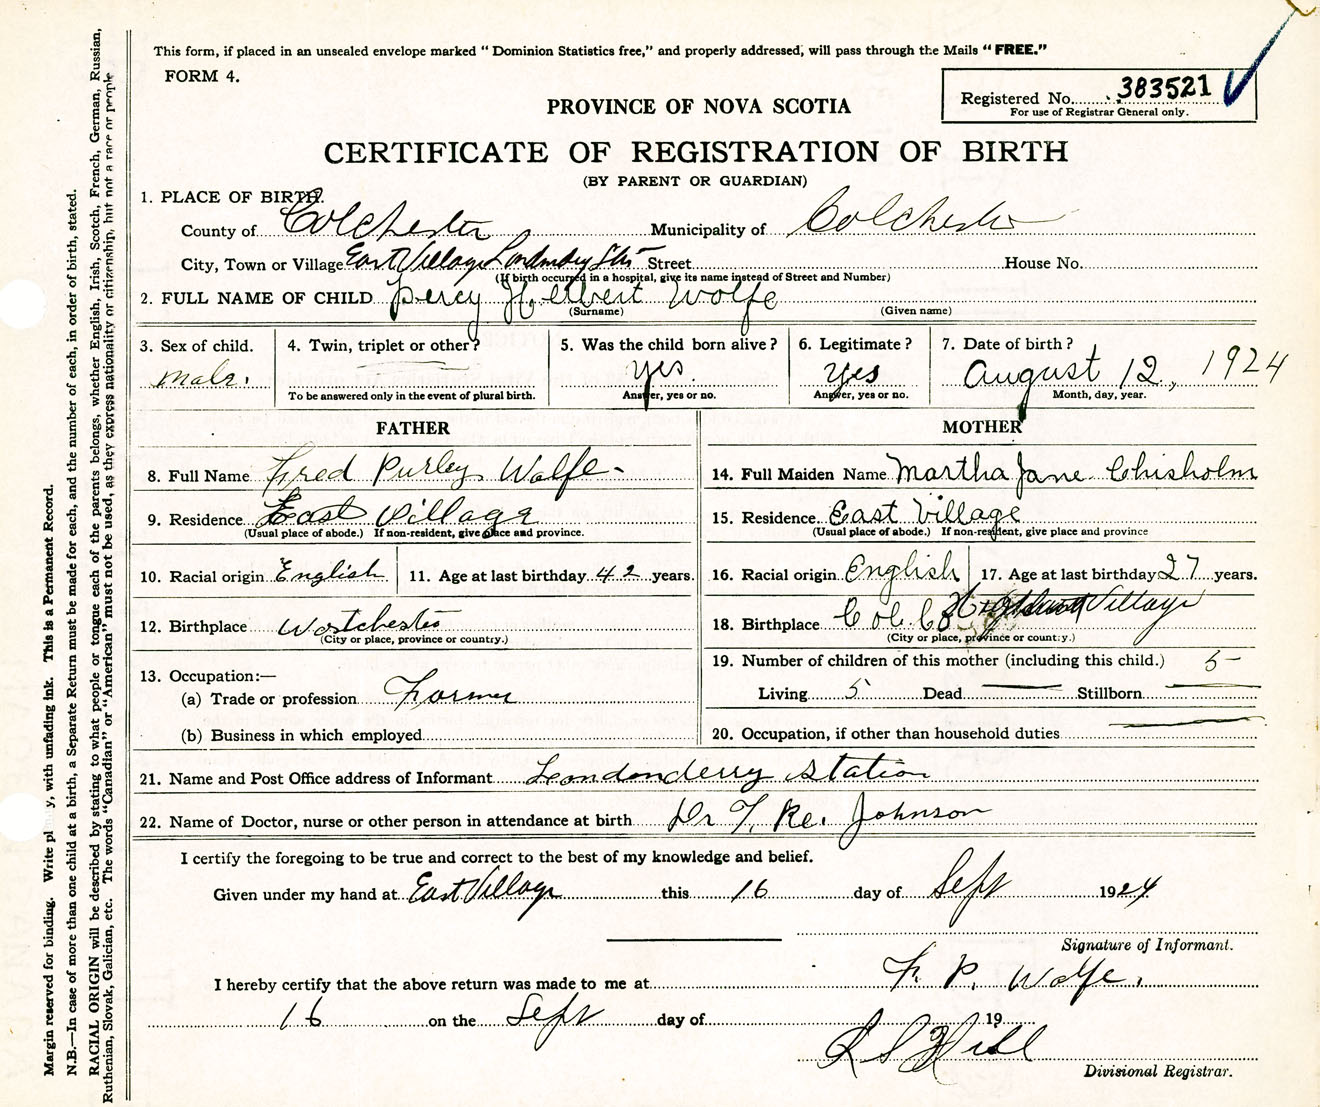 This form, if placed in an unsealed envelope marked "Dominion Statistics free," and properly addressed, will pass through the Mails "FREE."
FORM 4.
Registered No. 383521
For use of Registrar General only.
PROVINCE OF NOVA SCOTIA
CERTIFICATE OF REGISTRATION OF BIRTH
(BY PARENT OR GUARDIAN)
1. PLACE OF BIRTH.
County of Colchester Municipality of Colchester
City, Town or Village East Village Londonderry Stn Street House No.
(If birth occurred in a hospital, give its name instead of Street and Number)
2. FULL NAME OF CHILD Percy Herbert Wolfe
(Surname) (Given name)
3. Sex of child. 4. Twin, triplet or other? 5. Was the child born alive? 6. Legitimate? 7. Date of birth?
Male. Yes. Yes August 12, 1924
To be answered only in the event of plural birth. Answer, yes or no. Answer, yes or no. Month, day, year.
FATHER
8. Full Name Fred Purley Wolfe
9. Residence East Village
(Usual place of abode.) If non-resident, give place and province.
10. Racial origin English 11. Age at last birthday 42 years.
12. Birthplace Westchester
(City or place, province or country.)
13. Occupation:—
(a) Trade or profession Farmer
(b) Business in which employed
MOTHER
14. Full Maiden Name Martha Jane Chisholm
15. Residence East Village
(Usual place of abode.) If non-resident, give place and province
16. Racial origin English 17. Age at last birthday 27 years.
18. Birthplace Col. Co Village
(City or place, province or country.)
19. Number of children of this mother (including this child.) 5
Living 5 Dead — Stillborn —
20. Occupation, if other than household duties —
21. Name and Post Office address of Informant Londonderry Station
22. Name of Doctor, nurse or other person in attendance at birth Dr T. Re. Johnson
I certify the foregoing to be true and correct to the best of my knowledge and belief.
Given under my hand at East Village this 16 day of Sept 1924
Signature of Informant.
F. P. Wolfe.
I hereby certify that the above return was made to me at
16 on the Sept day of 19
R S Hill
Divisional Registrar.
Margin reserved for binding. Write pl y, with unfading ink. This is a Permanent Record.
N.B.—In case of more than one child at a birth, a Separate Return must be made for each, and the number of each, in order of birth, stated.
RACIAL ORIGIN will be described by stating to what people or tongue each of the parents belongs, whether English, Irish, Scotch, French, German, Russian,
Ruthenian, Slovak, Galician, etc. The words "Canadian" or "American" must not be used, as they express nationality or citizenship, but not a race or people